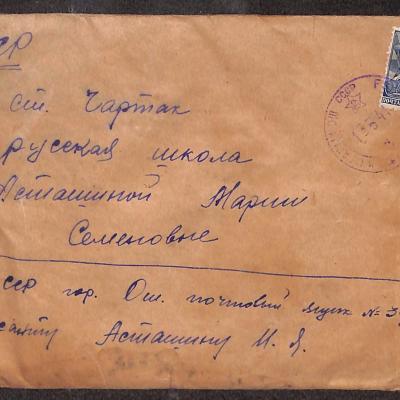 СР
ст. Чартак
русская школа
Асташиной Марии
Семеновне
ССР гор. Ош. почтовый ящик №
Асташину И. Я.
СССР